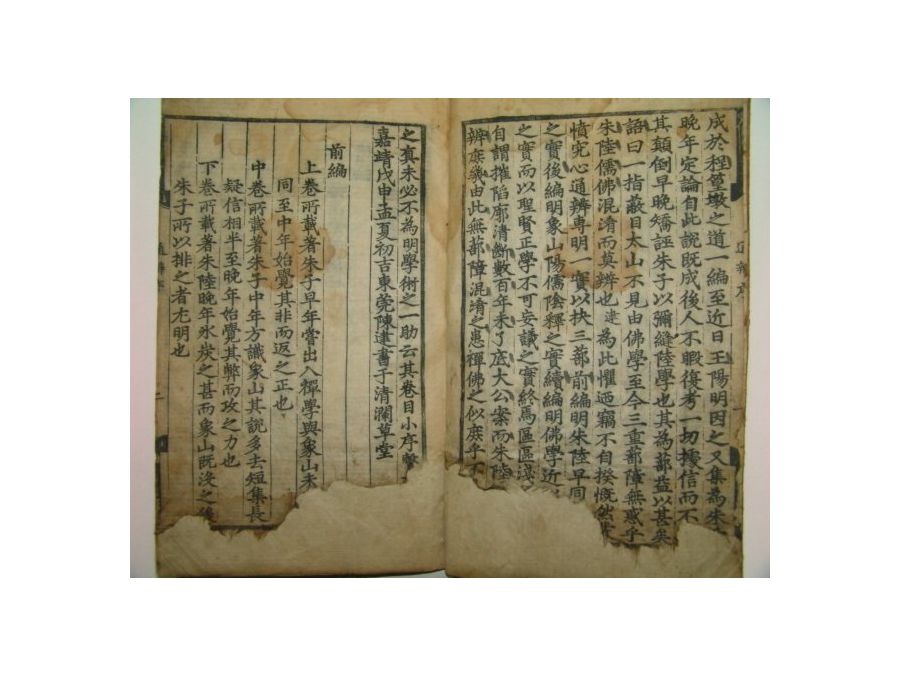 成於程篁墩之道一編至近日王陽明因之又集為朱
晚年定論自此說既成後人不暇復考一切據信而不
其顛倒早晚矯誣朱子以彌縫陸學也其為蔀益以甚矣
語曰一指蔽目太山不見由佛學至今三重蔀障無惑乎
朱陸儒佛混淆而莫辨也建為此懼迺竊不自揆慨然
憤究心通辨專明一實以抉三蔀前編明朱陸早同
之實後編明象山陽儒陰釋之實續編明佛學近
之實而以聖賢正學不可妄議之實終焉區區淺
自謂摧陷廓清斷數百年未了底大公案而朱陸
辨庶幾由此無蔀障混淆之患禪佛之似庶乎不
之真未必不為明學術之一助云其卷目小序
嘉靖戊申孟夏初吉東莞陳建書于清瀾草堂
前編
上卷所載著朱子早年嘗出入禪學與象山未
同至中年始覺其非而返之正也
中卷所載著朱子中年方識象山其說多去短集長
疑信相半至晚年始覺其弊而攻之力也
下卷所載著朱陸晚年氷炭之甚而象山既沒之後
朱子所以排之者尤明也